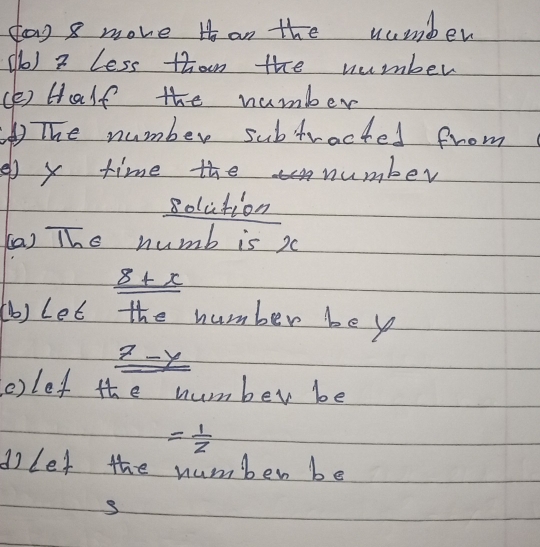 (a) 8 more than the number
(b) 7 less than the number
(c) Half the number
(d) The number subtracted from
e) y time the number
solution
(a) The numb is x
8 + x
(b) Let the number be y
7 - y
c) let the number be
= 1/2
d) Let the number be
s